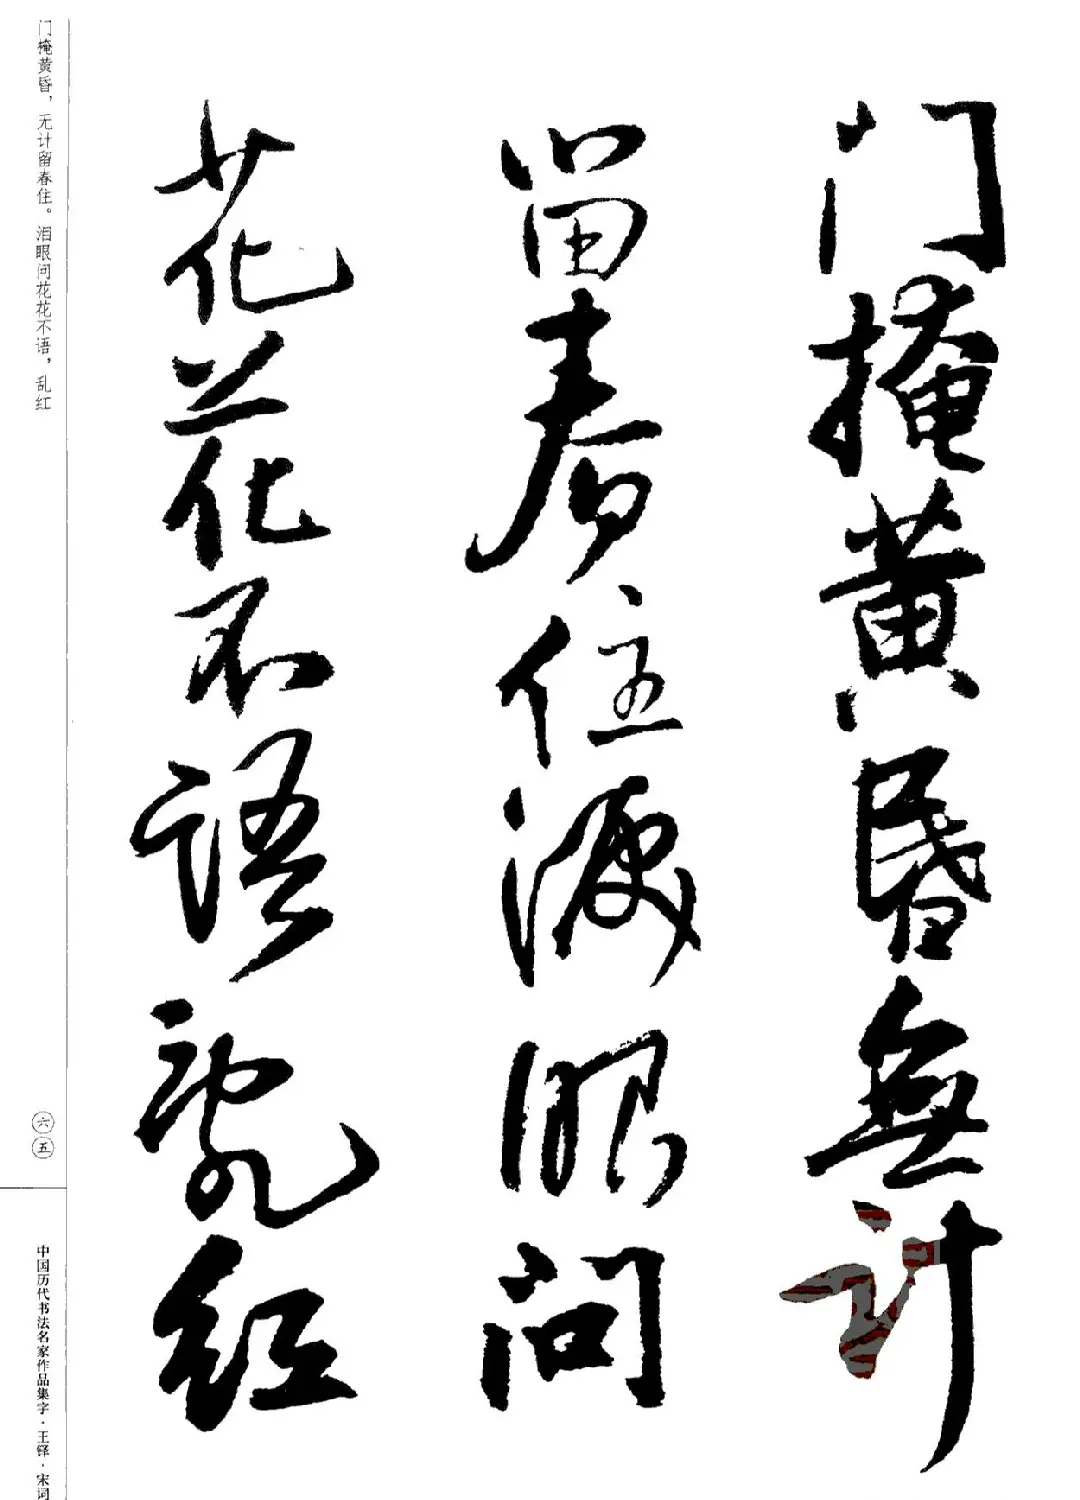 门掩黄昏無计
留春住淚眼问
花花不语亂红
门掩黄昏，无计留春住。泪眼问花花不语，乱红
六五
中国历代书法名家作品集字·王铎·宋词